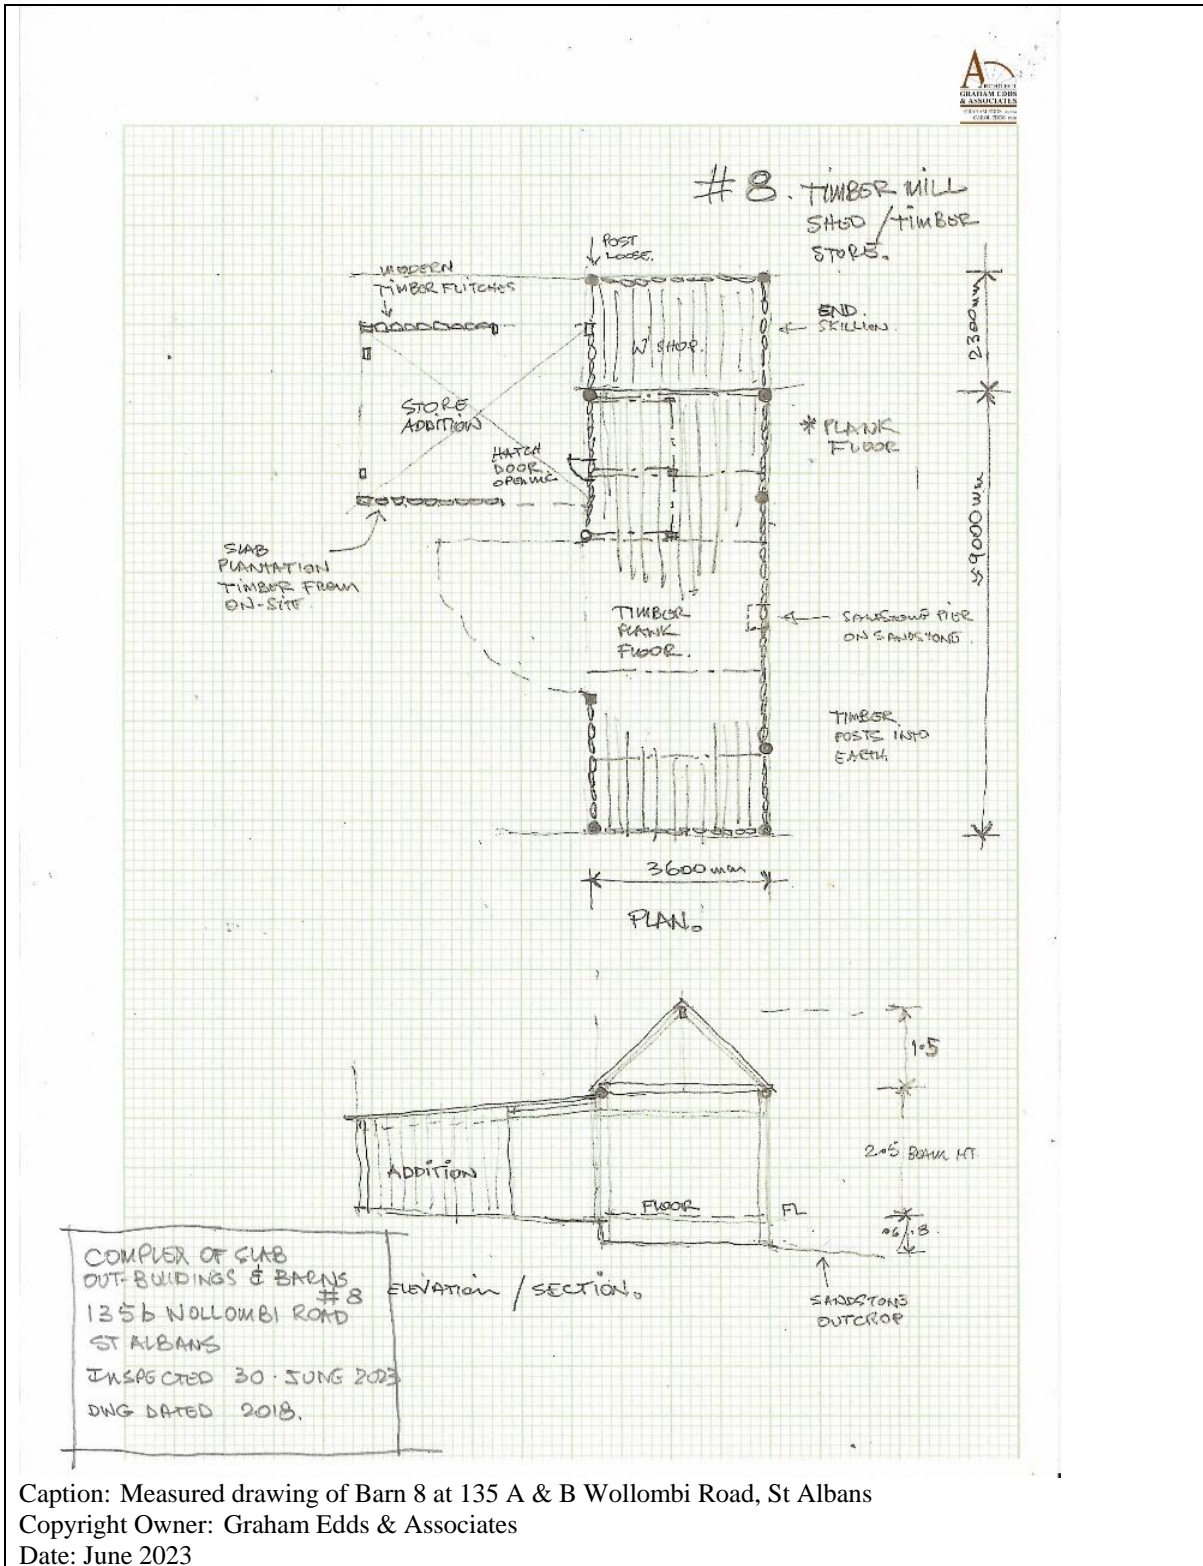 ARCHITECT
GRAHAM EDDS
& ASSOCIATES
# 8. TIMBER MILL
SHED / TIMBER
STORE.
POST
LOOSE.
MODERN
TIMBER FLITCHES
END.
SKILLION.
2300mm
W'SHOP.
STORE
ADDITION
* PLANK
FLOOR
HATCH
DOOR
OPENING
≈9000mm
SLAB
PLANTATION
TIMBER FROM
ON-SITE.
TIMBER
PLANK
FLOOR.
SANDSTONE PIER
ON SANDSTONE.
TIMBER
POSTS INTO
EARTH.
3600mm
PLAN.
1.5
2.5 BEAM HT.
ADDITION
FLOOR
FL
.6/.8
ELEVATION / SECTION.
SANDSTONE
OUTCROP
COMPLEX OF SLAB
OUT-BUILDINGS & BARNS
# 8
135b WOLLOMBI ROAD
ST ALBANS
INSPECTED 30 · JUNE 2023
DWG DATED 2018.
Caption: Measured drawing of Barn 8 at 135 A & B Wollombi Road, St Albans
Copyright Owner: Graham Edds & Associates
Date: June 2023